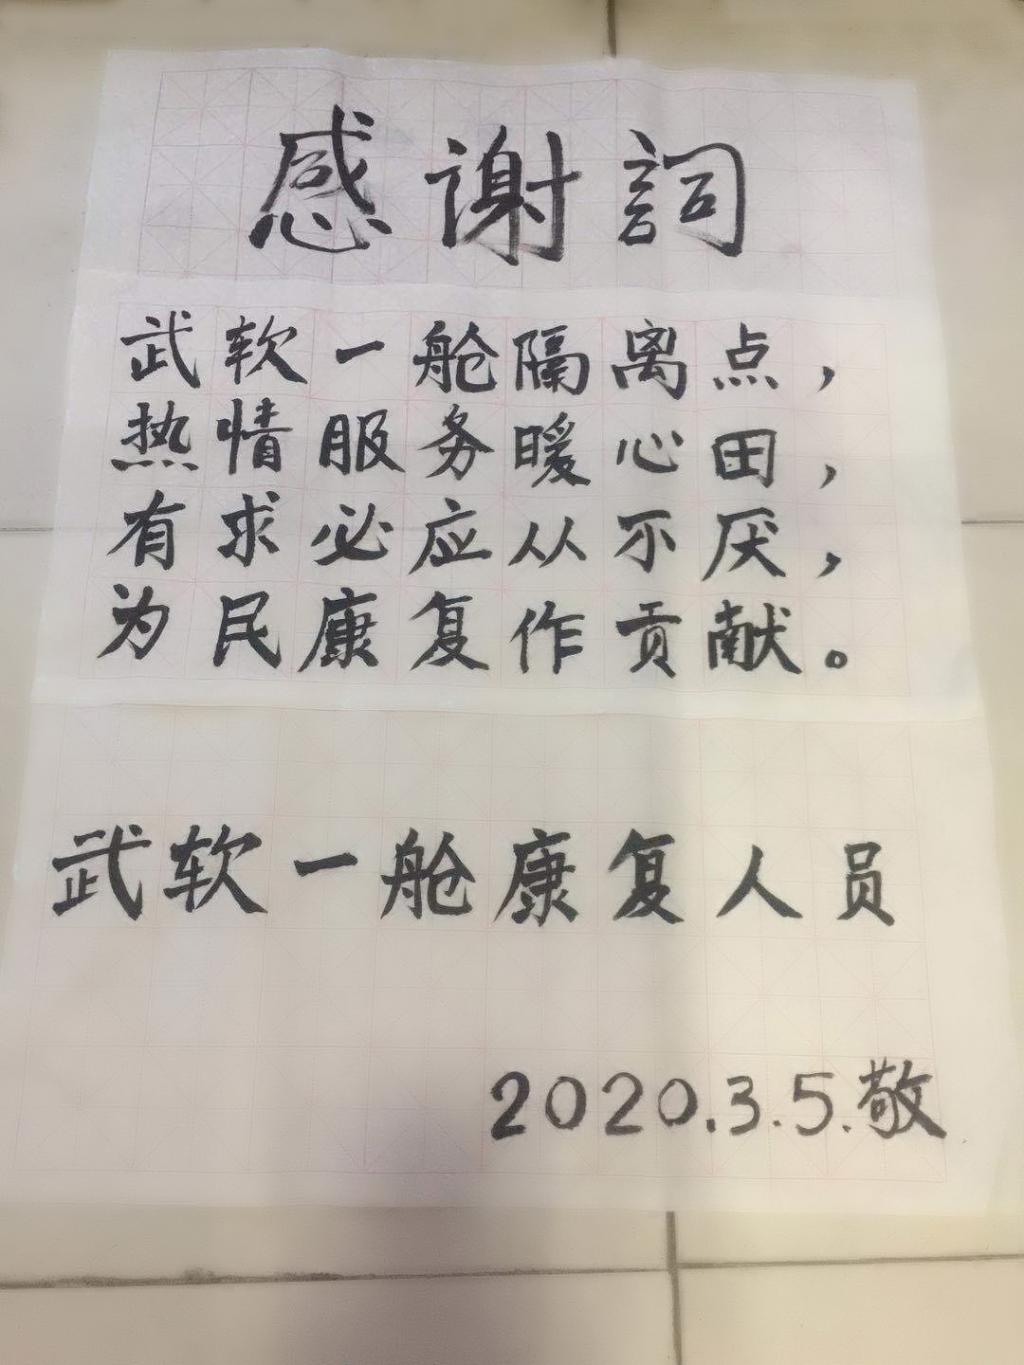 感谢詞
武软一舱隔离点，
热情服务暖心田，
有求必应从不厌，
为民康复作贡献。
武软一舱康复人员
2020.3.5.敬